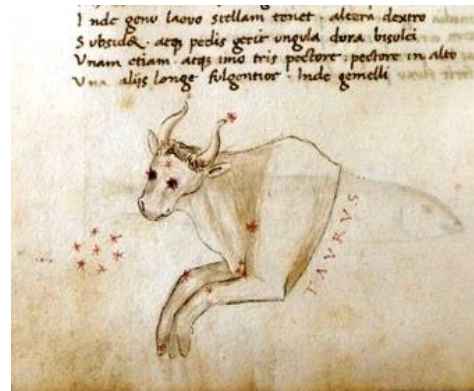 Inde genu laevo stellam tenet · altera dextro
Subsidet · atq; pedis gerit ungula dura bisulci
Vnam etiam · atqs imo tris pectore · pectore in alto
Vna alijs longe fulgentior · Inde gemelli
TAVRVS